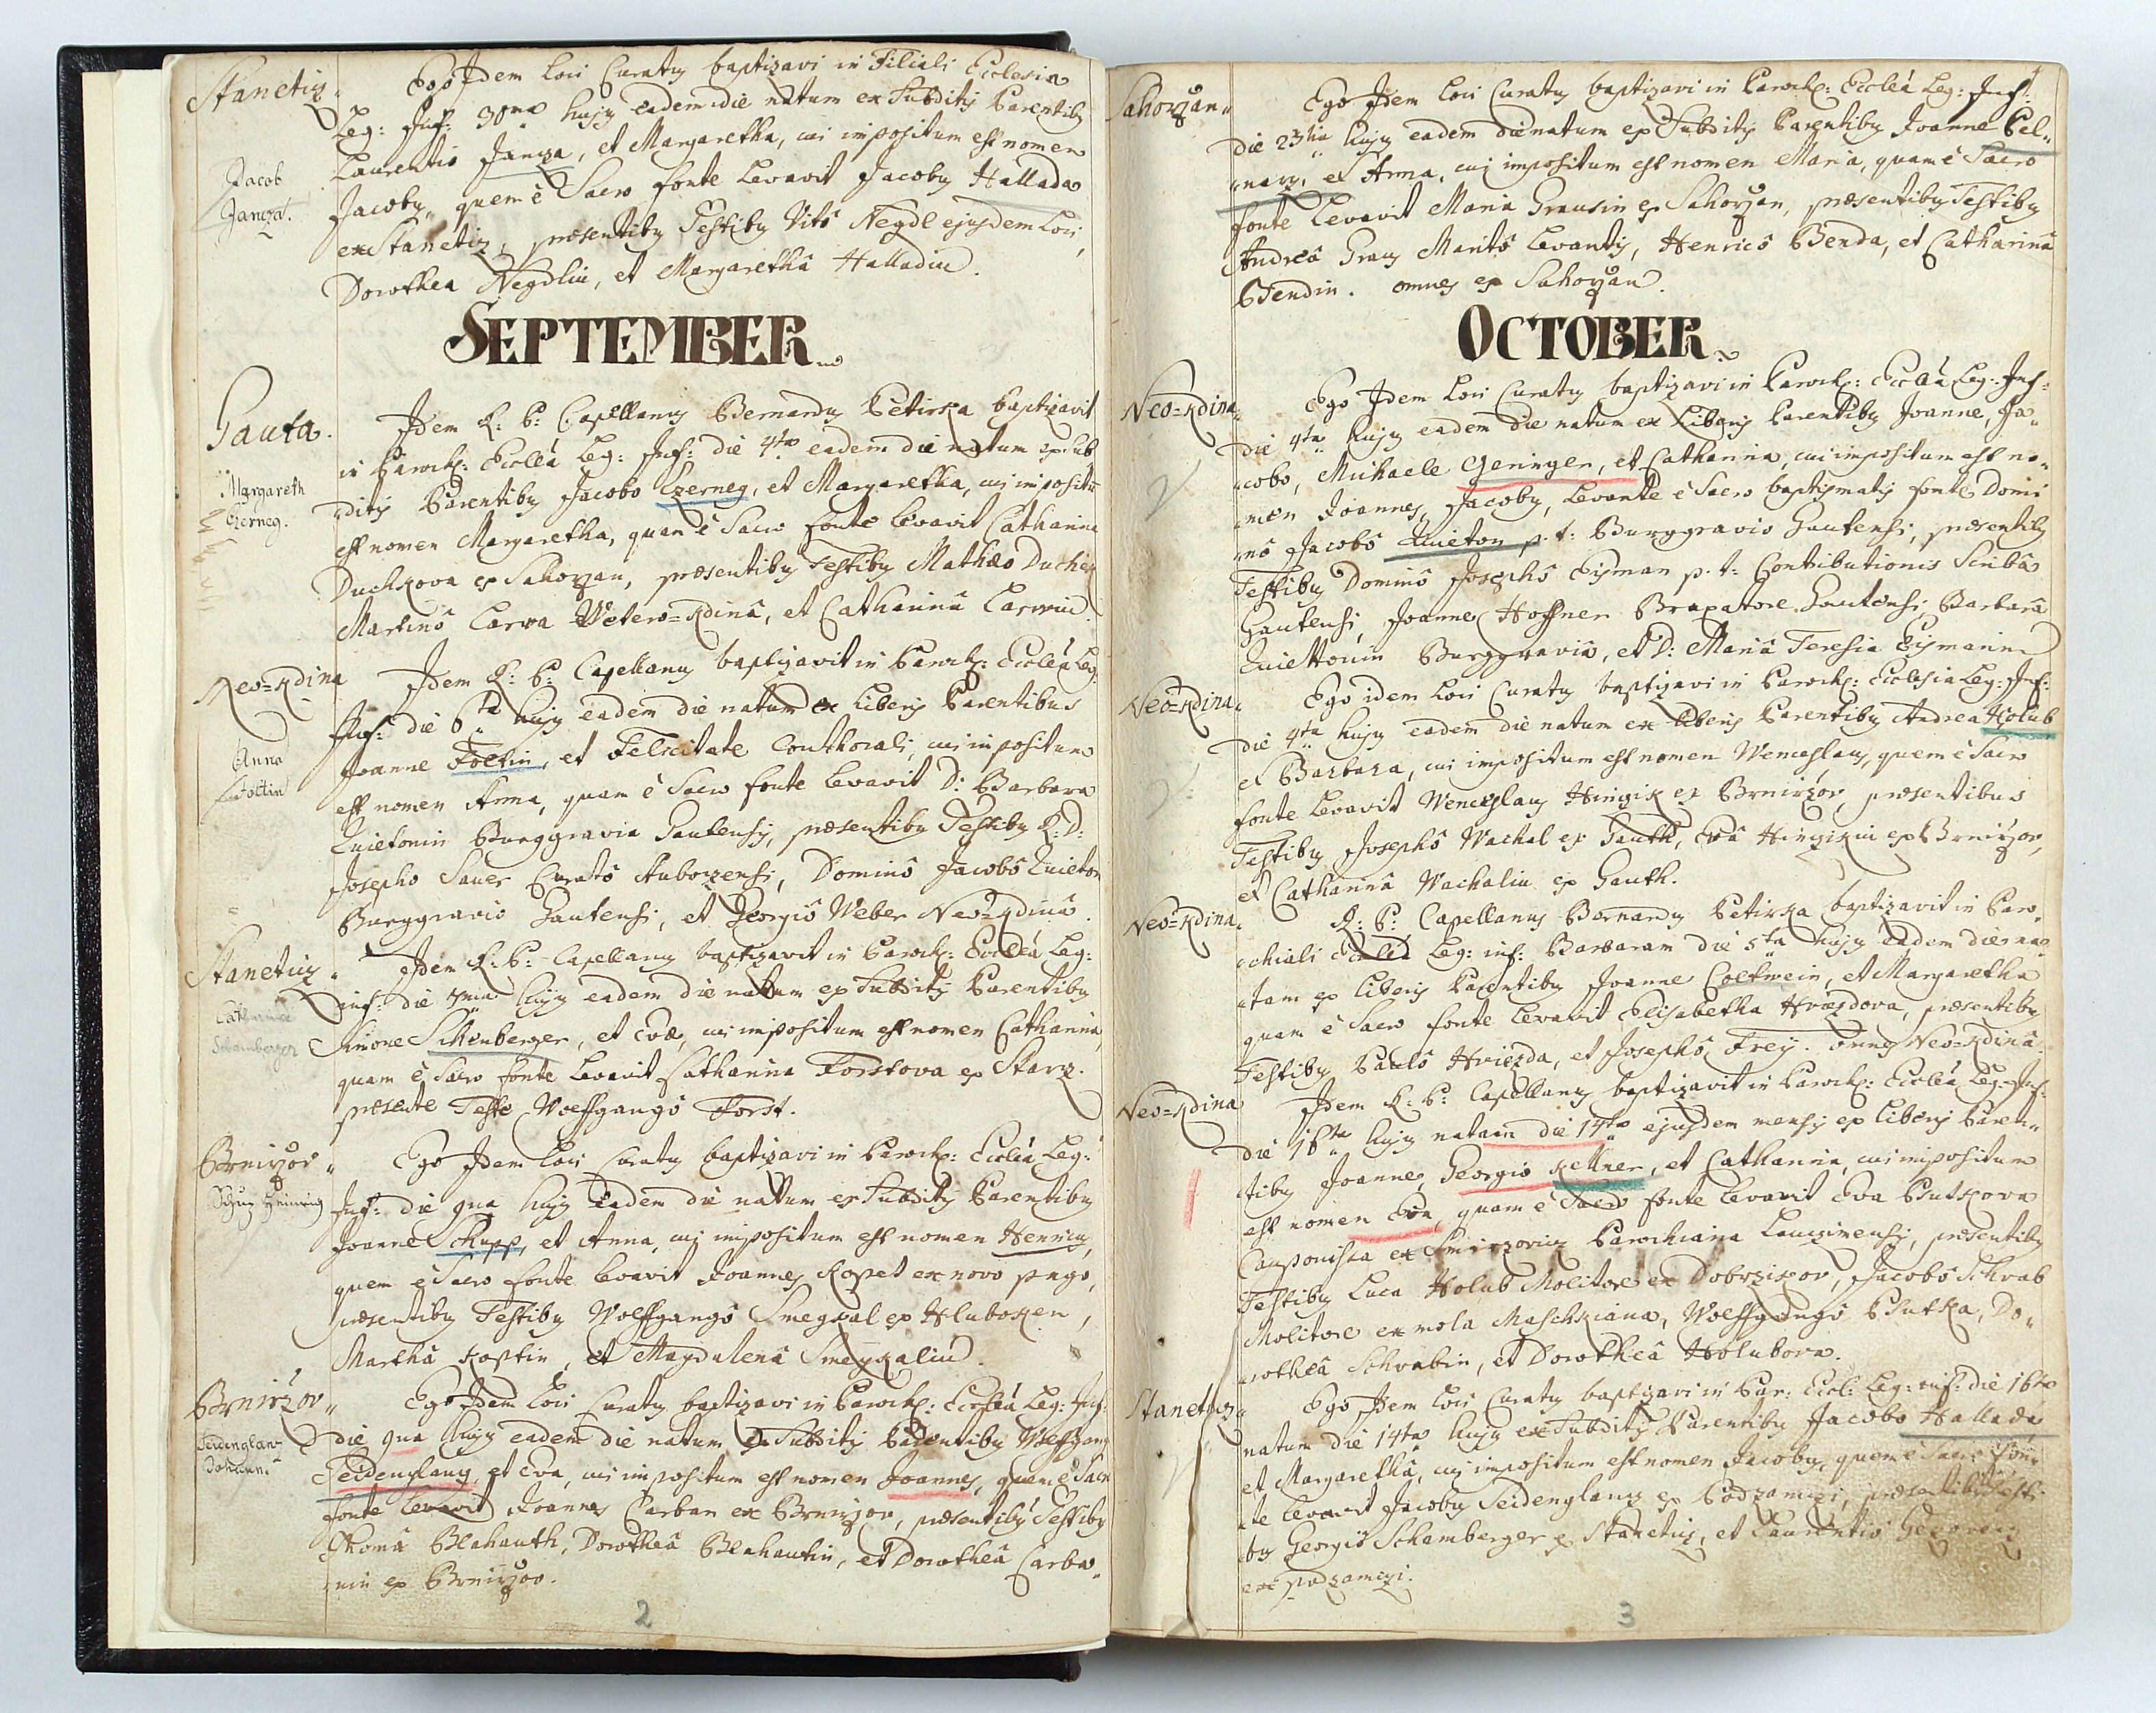 Stanetiz
Ego Idem loci Curatus baptizavi in Filiali Ecclesia
Leg: Inf: 30ma hujus eadem die natum ex Subditis Parentibus
Laurentio Janza, et Margaretha, cui impositum est nomen
Jacob
Janza.
Jacobus, quem è Sacro fonte Levavit Jacobus Hallada
ex Stanetiz, præsentibus Testibus Vitô Negdl ejusdem loci,
Dorothea Negdlin, et Margarethâ Halladin.
SEPTEMBER
Gauta.
Idem R: P: Capellanus Bernardus Petirka baptizavit
in Paroch: Ecclẽa Leg: Inf: die 4ta eadem die natum ex Sub
Margareth
Czerneg.
ditis Parentibus Jacobo Czerneg, et Margaretha, cui impositũ
est nomen Margaretha, quam è Sacro fonte levavit Catharina
Duchkova ex Sahorzan, præsentibus Testibus Mathæo Duchek
Martinô Carva Vetero=Kdinâ, et Catharinâ Carvin.
Neo=Kdina
Idem R: P: Capellanus baptizavit in Paroch: Ecclẽa Leg:
Inf: die 6ta hujus eadem die natum ex Liberis Parentibus
Anna
Foltin
Joanne Foltin, et Felicitate Conthorali, cui impositum
est nomen Anna, quam è Sacro fonte levavit D: Barbara
Quietonin Burggravia Gautensis, præsentibus Testibus R: D:
Josepho Sauer Curatô Auborzensi, Dominô Jacobô Quieton
Burggravio Gautensi, et Georgiô Weber Neo=Kdinâ.
Stanetiz
Idem R: P: Capellanus baptizavit in Paroch: Ecclẽa Leg:
inf: die 7ma hujus eadem die natum ex Subditis Parentibus
Catharina
Schamberger
Simone Schenberger, et Eva, cui impositum est nomen Catharina,
quam è Sacro fonte levavit Catharina Forstova ex Starz.
præsente Teste Wolffgangô Forst.
Brnirzov
Ego Idem loci Curatus baptizavi in Paroch: Ecclẽa Leg:
Schup Heinrich
Inf: die 9na hujus eadem die natum ex Subditis Parentibus
Joanne Schupp, et Anna, cui impositum est nomen Henricus,
quem è Sacro fonte levavit Joannes Kopet ex novo pago,
præsentibus Testibus Wolffgangô Smegkal ex Hluboken,
Marthâ Kostin, et Magdalenâ Smeykalin.
Brnirzov
Ego Idem loci Curatus baptizavi in Paroch: Ecclẽa Leg: Inf:
Seidenglanz
Johann.
die 9na hujus eadem die natum ex Subditis Parentibus Wolffgang
Seidenglanz, et Eva, cui impositum est nomen Joannes, quem è Sacro
fonte levavit Joannes Carban ex Brnirzov, præsentibus Testibus
Thomâ Blahauth, Dorotheâ Blahautin, et Dorotheâ Carba-
nin ex Brnirzov.
2
Sahorzan
Ego Idem loci Curatus baptizavi in Paroch: Ecclẽa Leg: Inf:
die 23tia hujus eadem die natum ex Subditis Parentibus Joanne Bel-
narz, et Anna, cui impositum est nomen Maria, quam è Sacro
fonte levavit Maria Grausin ex Sahorzan, præsentibus Testibus
Andreâ Graus Maritô Levantis, Henricô Benda, et Catharinâ
Bendin. omnes ex Sahorzan.
OCTOBER
Neo=Kdina
Ego Idem loci Curatus baptizavi in Paroch: Ecclẽa Leg: Inf:
die 4ta hujus eadem die natum ex Liberis Parentibus Joanne, Ja-
cobo, Michaele Geninger, et Catharina, cui impositum est no-
men Joannes, Jacobus, levante è Sacro baptismatis fonte Domi
nô Jacobô Quieton p. t: Burggravio Gautensi, præsentibus
Testibus Dominô Josephô Eisman p. t: Contributionis Scribâ
Gautensi, Joanne Hoffner Braxatore Gautensi, Barbarâ
Quiettonin Burggraviâ, et D: Mariâ Teresia Eismanin
Neo=Kdina
Ego idem loci Curatus baptizavi in Paroch: Ecclesia Leg: Inf:
die 4ta hujus eadem die natum ex liberis Parentibus Andrea Holub
et Barbara, cui impositum est nomen Wenceslaus, quem è Sacro
fonte levavit Wenceslaus Hingik ex Brnirzov, præsentibus
Testibus Josephô Wachal ex Gauth, Evâ Hingikin ex Brnirzov,
et Catharinâ Wachalin ex Gauth.
Neo=Kdina
R: P: Capellanus Bernardus Petirka baptizavit in Paro-
chiali Ecclẽa Leg: inf: Barbaram die 5ta hujus eadem die na-
tam ex liberis Parentibus Joanne Coltwein, et Margaretha
quam è Sacro fonte levavit Elisabetha Hvæzdova, præsentibus
Testibus Paulô Hviezda, et Josephô Frey. omnes Neo=Kdinâ.
Neo=Kdina
Idem R: P: Capellanus baptizavit in Paroch: Ecclẽa Leg: Inf:
die 16ta hujus natam die 14ta ejusdem mensis ex liberis Paren-
tibus Joanne, Georgio Kellner, et Catharina, cui impositum
est nomen Eva, quam è Sacro fonte levavit Eva Putkova
Cauponissa ex Smirzoviz Parochiana Laucimensis, præsentibus
Testibus Luca Holub Molitore ex Dobrzikov, Jacobô Schvab
Molitore ex mola Maschkiana, Wolffgangô Putka, Do-
rotheâ Schvabin, et Dorotheâ Holubova.
Stanetiz
Ego Idem loci Curatus baptizavi in Par: Eccl: Leg: inf: die 16ta
natum die 14ta hujus ex Subditis Parentibus Jacobo Hallada,
et Margarethâ, cui impositum est nomen Jacobus, quem è Sacro fon-
te levavit Jacobus Seidenglanz ex Podzamczi, præsentibus Testi-
bus Georgiô Schamberger ex Stanetiz, et Laurentiô
ex podzamczi.
3